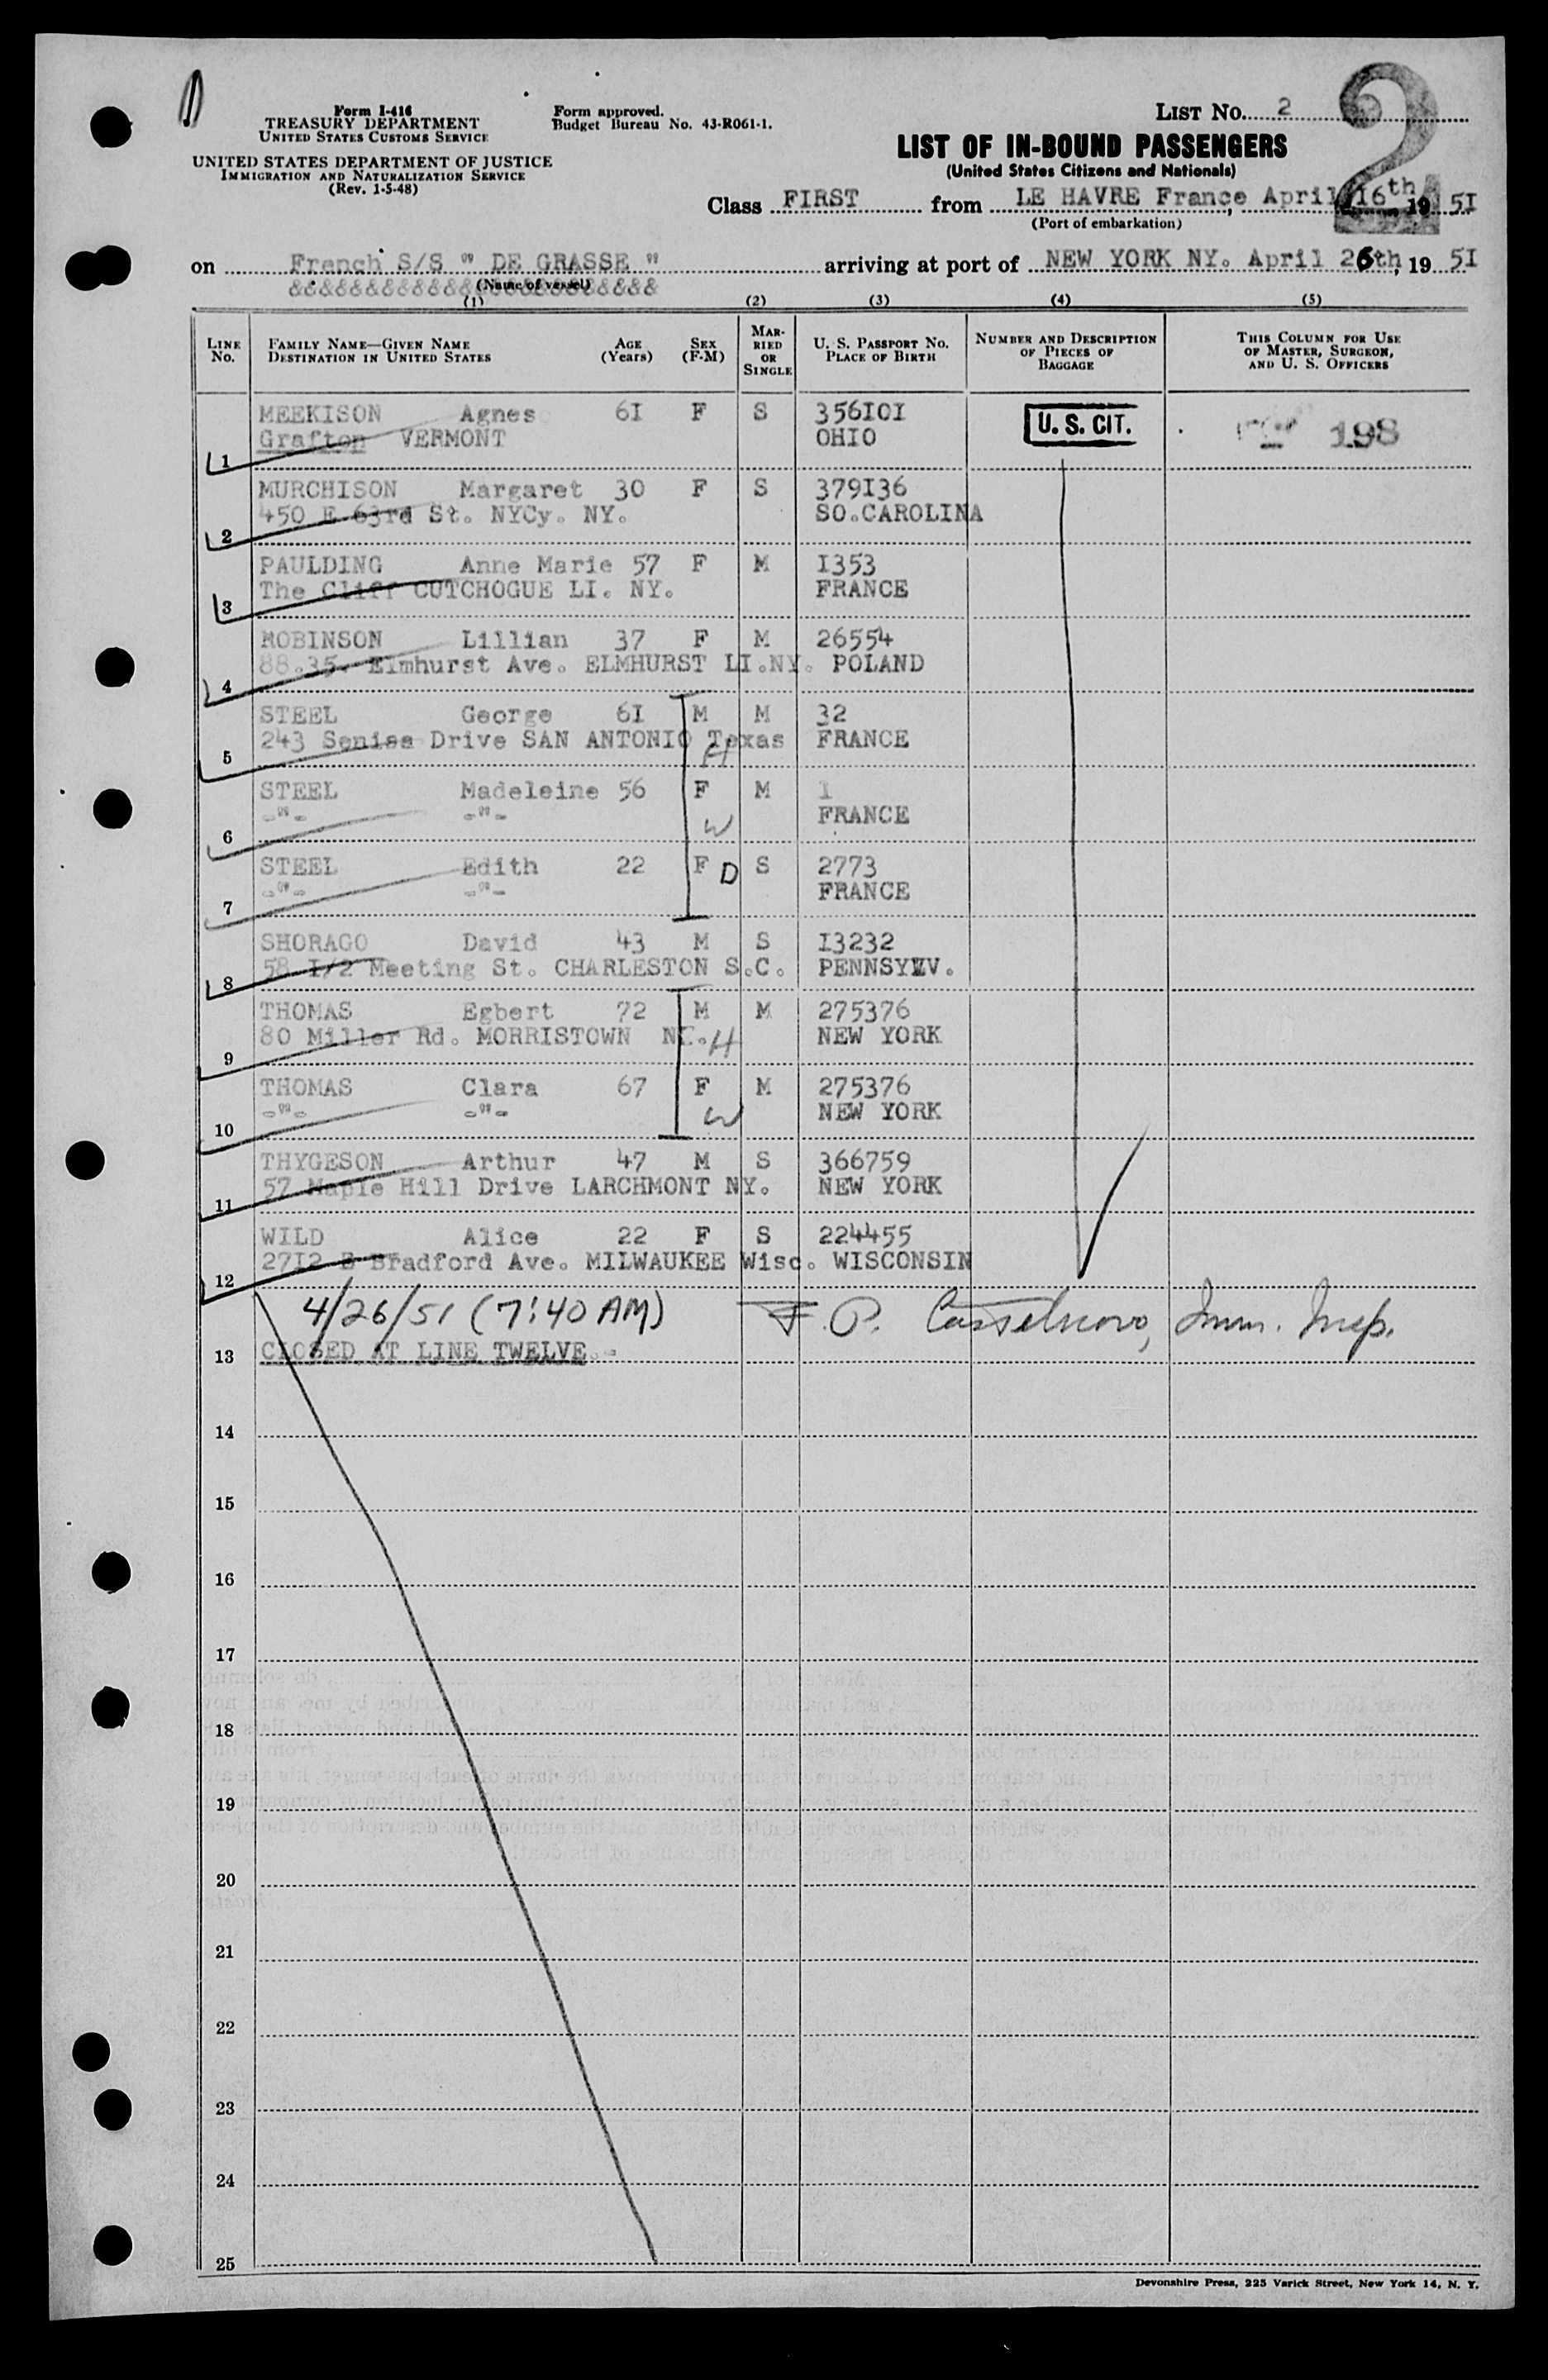 Form I-416
TREASURY DEPARTMENT
UNITED STATES CUSTOMS SERVICE
UNITED STATES DEPARTMENT OF JUSTICE
IMMIGRATION AND NATURALIZATION SERVICE
(Rev. 1-5-48)
Form approved.
Budget Bureau No. 43-R061-1.
LIST No. 2
2
LIST OF IN-BOUND PASSENGERS
(United States Citizens and Nationals)
Class FIRST from LE HAVRE France, April 16th 19 5I
(Port of embarkation)
on French S/S " DE GRASSE " arriving at port of NEW YORK NY. April 26th, 19 5I
&&&&&&&&&&&&&&&&&&&&&&&&
(Name of vessel)
(1) (2) (3) (4) (5)
LINE No. FAMILY NAME—GIVEN NAME DESTINATION IN UNITED STATES AGE (Years) SEX (F-M) MARRIED OR SINGLE U. S. PASSPORT No. PLACE OF BIRTH NUMBER AND DESCRIPTION OF PIECES OF BAGGAGE THIS COLUMN FOR USE OF MASTER, SURGEON, AND U. S. OFFICERS
MEEKISON Agnes 6I F S 356I0I U. S. CIT. 198
1 Grafton VERMONT OHIO
MURCHISON Margaret 30 F S 379I36
2 450 E 63rd St. NYCy. NY. SO.CAROLINA
PAULDING Anne Marie 57 F M I353
3 The Cliff CUTCHOGUE LI. NY. FRANCE
ROBINSON Lillian 37 F M 26554
4 88.35. Elmhurst Ave. ELMHURST LI.NY. POLAND
STEEL George 6I M M 32
5 243 Senisa Drive SAN ANTONIO Texas H FRANCE
STEEL Madeleine 56 F M I
6 -"- -"- W FRANCE
STEEL Edith 22 F D S 2773
7 -"- -"- FRANCE
SHORAGO David 43 M S I3232
8 58 I/2 Meeting St. CHARLESTON S.C. PENNSYLV.
THOMAS Egbert 72 M M 275376
9 80 Miller Rd. MORRISTOWN H NEW YORK
THOMAS Clara 67 F M 275376
10 -"- -"- W NEW YORK
THYGESON Arthur 47 M S 366759
11 57 Maple Hill Drive LARCHMONT NY. NEW YORK
WILD Alice 22 F S 224455
12 27I2 E Bradford Ave. MILWAUKEE Wisc. WISCONSIN
4/26/51 (7:40 AM) F. P. Casselnovo, Imm. Insp.
13 CLOSED AT LINE TWELVE
14
15
16
17
18
19
20
21
22
23
24
25
Devonshire Press, 225 Varick Street, New York 14, N. Y.